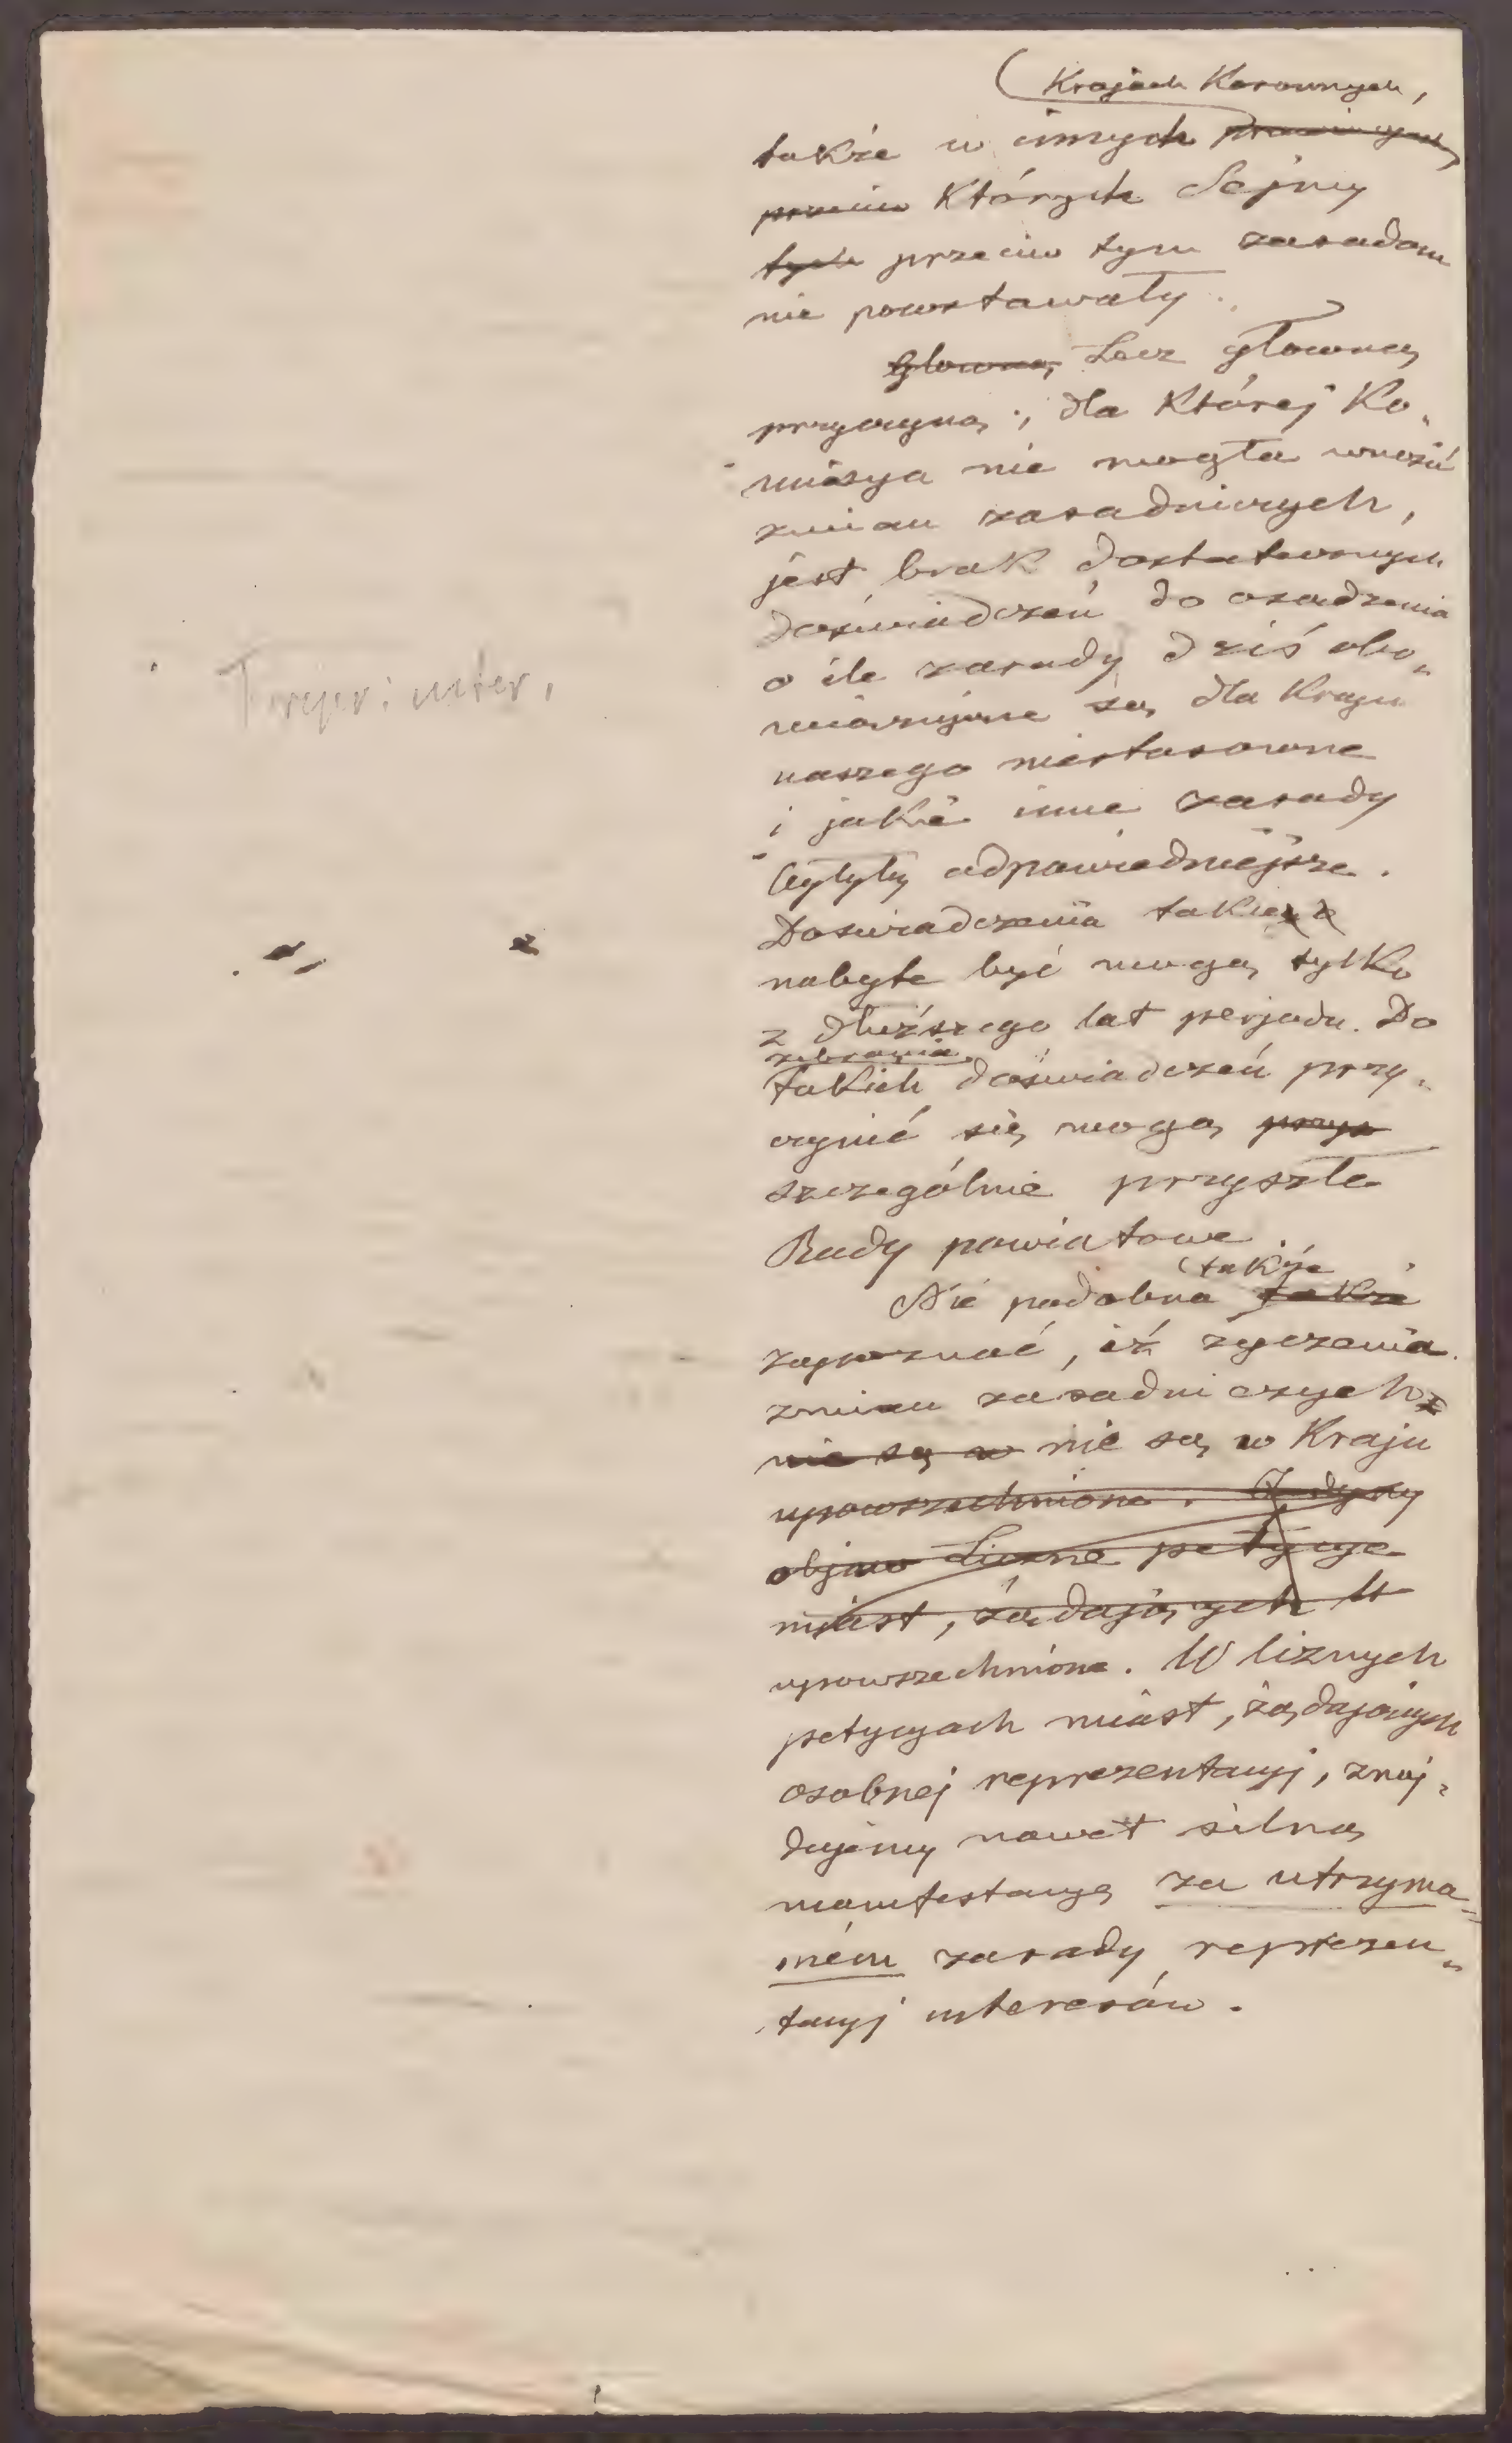 Krajach Koronnych,
także w innych prowincyach,
przeciw których Sejmy
tych przeciw tym zasadom
nie powstawały.
Główną, Lecz główną
przyczyną, dla której Ko„
misya nie mogła wnosić
zmian zasadniczych,
jest brak dostatecznych
doświadczeń do osądzenia
o ile zasady dziś obo„
wiązujące są dla Kraju
naszego niestosowne
i jakie inne zasady
byłyby odpowiedniejsze.
Doświadczenia takie
nabyte być mogą tylko
z dłuższego lat perjodu. Do
zebrania
takich doświadczeń przy„
czynić się mogą przys
szczególnie przyszłe
Rady powiatowe.
także
Nie podobna także
zapoznać, iż życzenia
zmian zasadniczych
nie są w nie są w Kraju
upowszechnione. Jedyny
objaw Liczne petycye
miast, żądających W
upowszechnione. W licznych
petycyach miast, żądających
osobnej reprezentacyj, znaj„
dujemy nawet silną
manifestacyę za utrzyma„
niem zasady reprezen„
tacyj interesów.